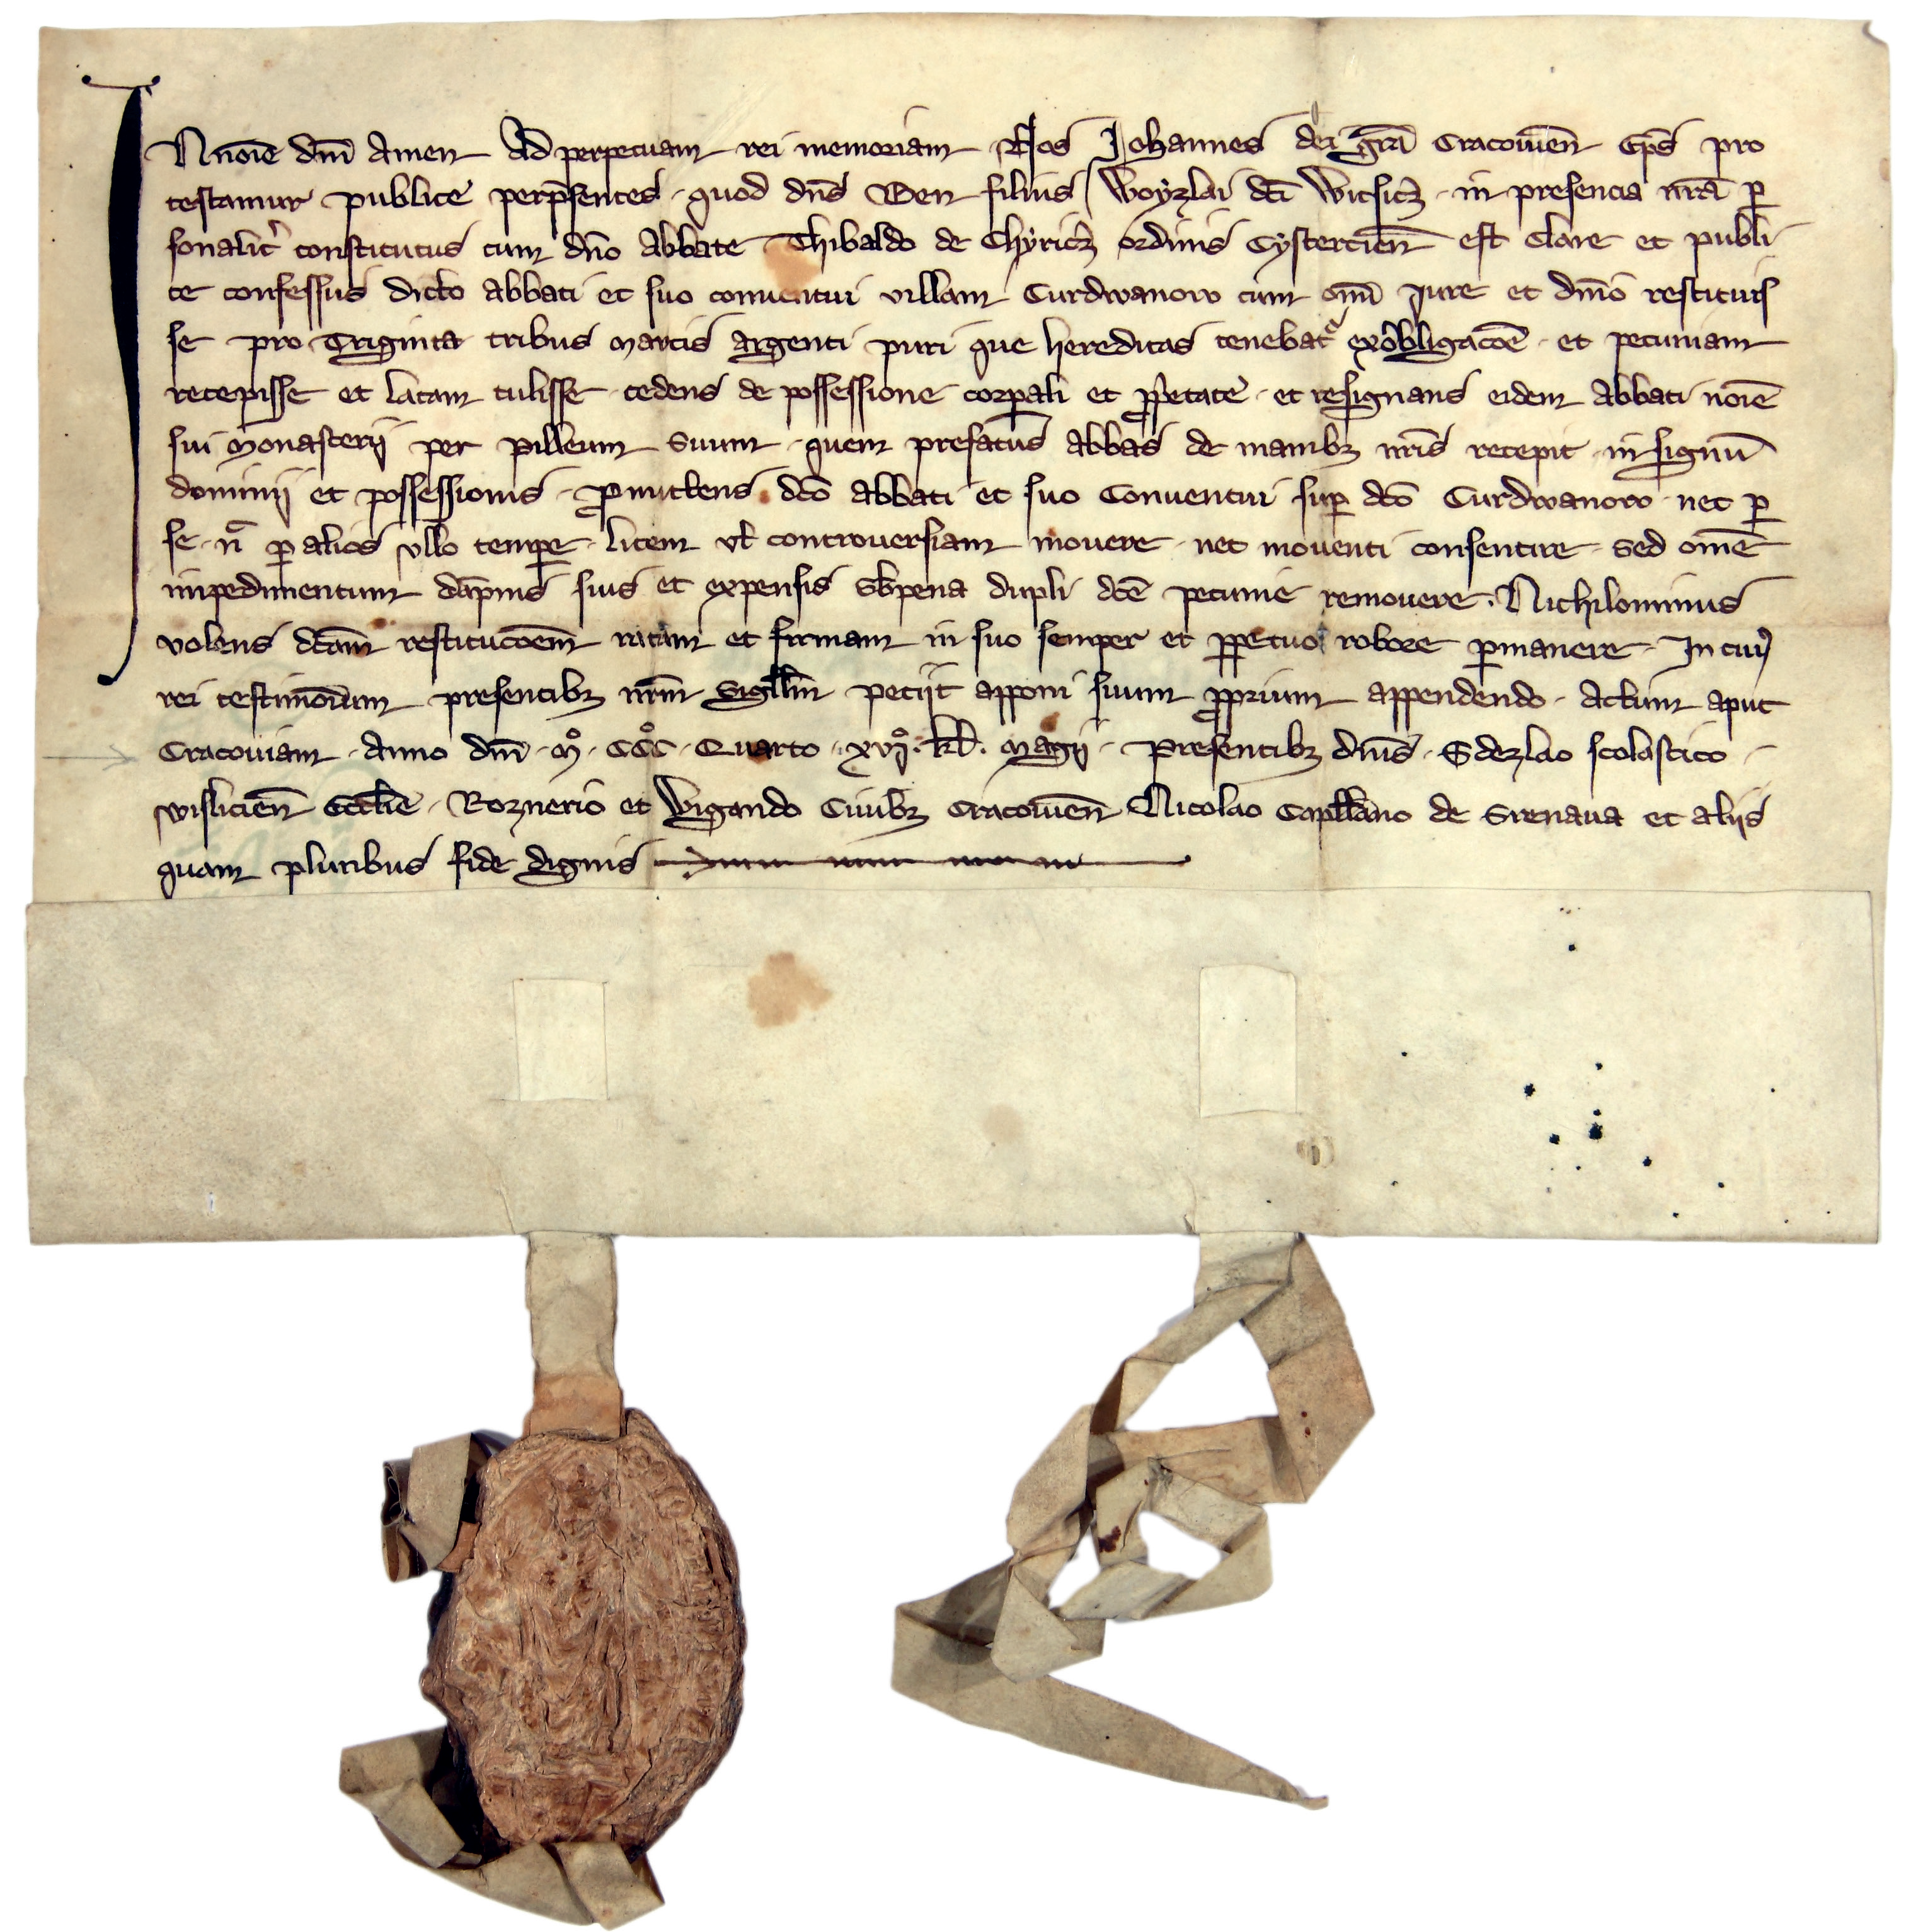 IN noīe dnī Amen Ad perpetuam rei memoriam Nos Johannes dei grā Cracouiēn Ep̄s pro
testamur publice per p̄sentes · quod dn̄s Ben filius Woyzlai dc̄i Witsicz · in presencia nr̄a p̲
sonalit͛ constitutus cum dn̄o Abbate Thibaldo de Chyricz ordinis Cystercien̄ est Clare et publi
ce confessus dicto abbati et suo conuentui villam Curdwanow cum om̄i Jure et dn̄io restituis
se pro Triginta tribus marcis argenti puri que hereditas tenebatᷣ ex obbligacōe · et pecuniam
recepisse et latam tulisse · cedens de possessione corp̲ali et ꝓp̱etate · et resignans eidem Abbati noīe
sui Monasterij per pilleum Suum · quem prefatus abbas de manibꝫ nr̄is recepit · in signū
dominij et possessionis · ꝓmittens dc̄o abbati et suo Conuentui sup̲ dc̄o Curdwanow · nec p̲
se · n̄ p̲ alios vllo temp̲e · litem vl̄ controuersiam mouere · nec mouenti consentire · sed om̄e
impedimentum dāpnis suis et expensis sb̄ pena dupli dc̄e pecunie remouere · Nichilominus
volens dc̄am restitucōem ratam et firmam in suo semper et p̲petuo robore p̲manere · In cuiꝰ
rei testimōium presentibꝫ nr̄m Sigll̄m petijt apponi suum ꝓprium appendendo · Actum aput
Cracouiam · Anno dn̄i · M° · CC°C · Quarto · xvij° · kl̄ · Magij · Presentibꝫ dn̄is · Sdezlao scolastico ·
wislicien̄ Eccl̄ie · Roznerio et Wigando Ciuibꝫ Cracouien̄ Nicolao Capll̄ano de Srenaua et aliis
quam pluribus fide dignis